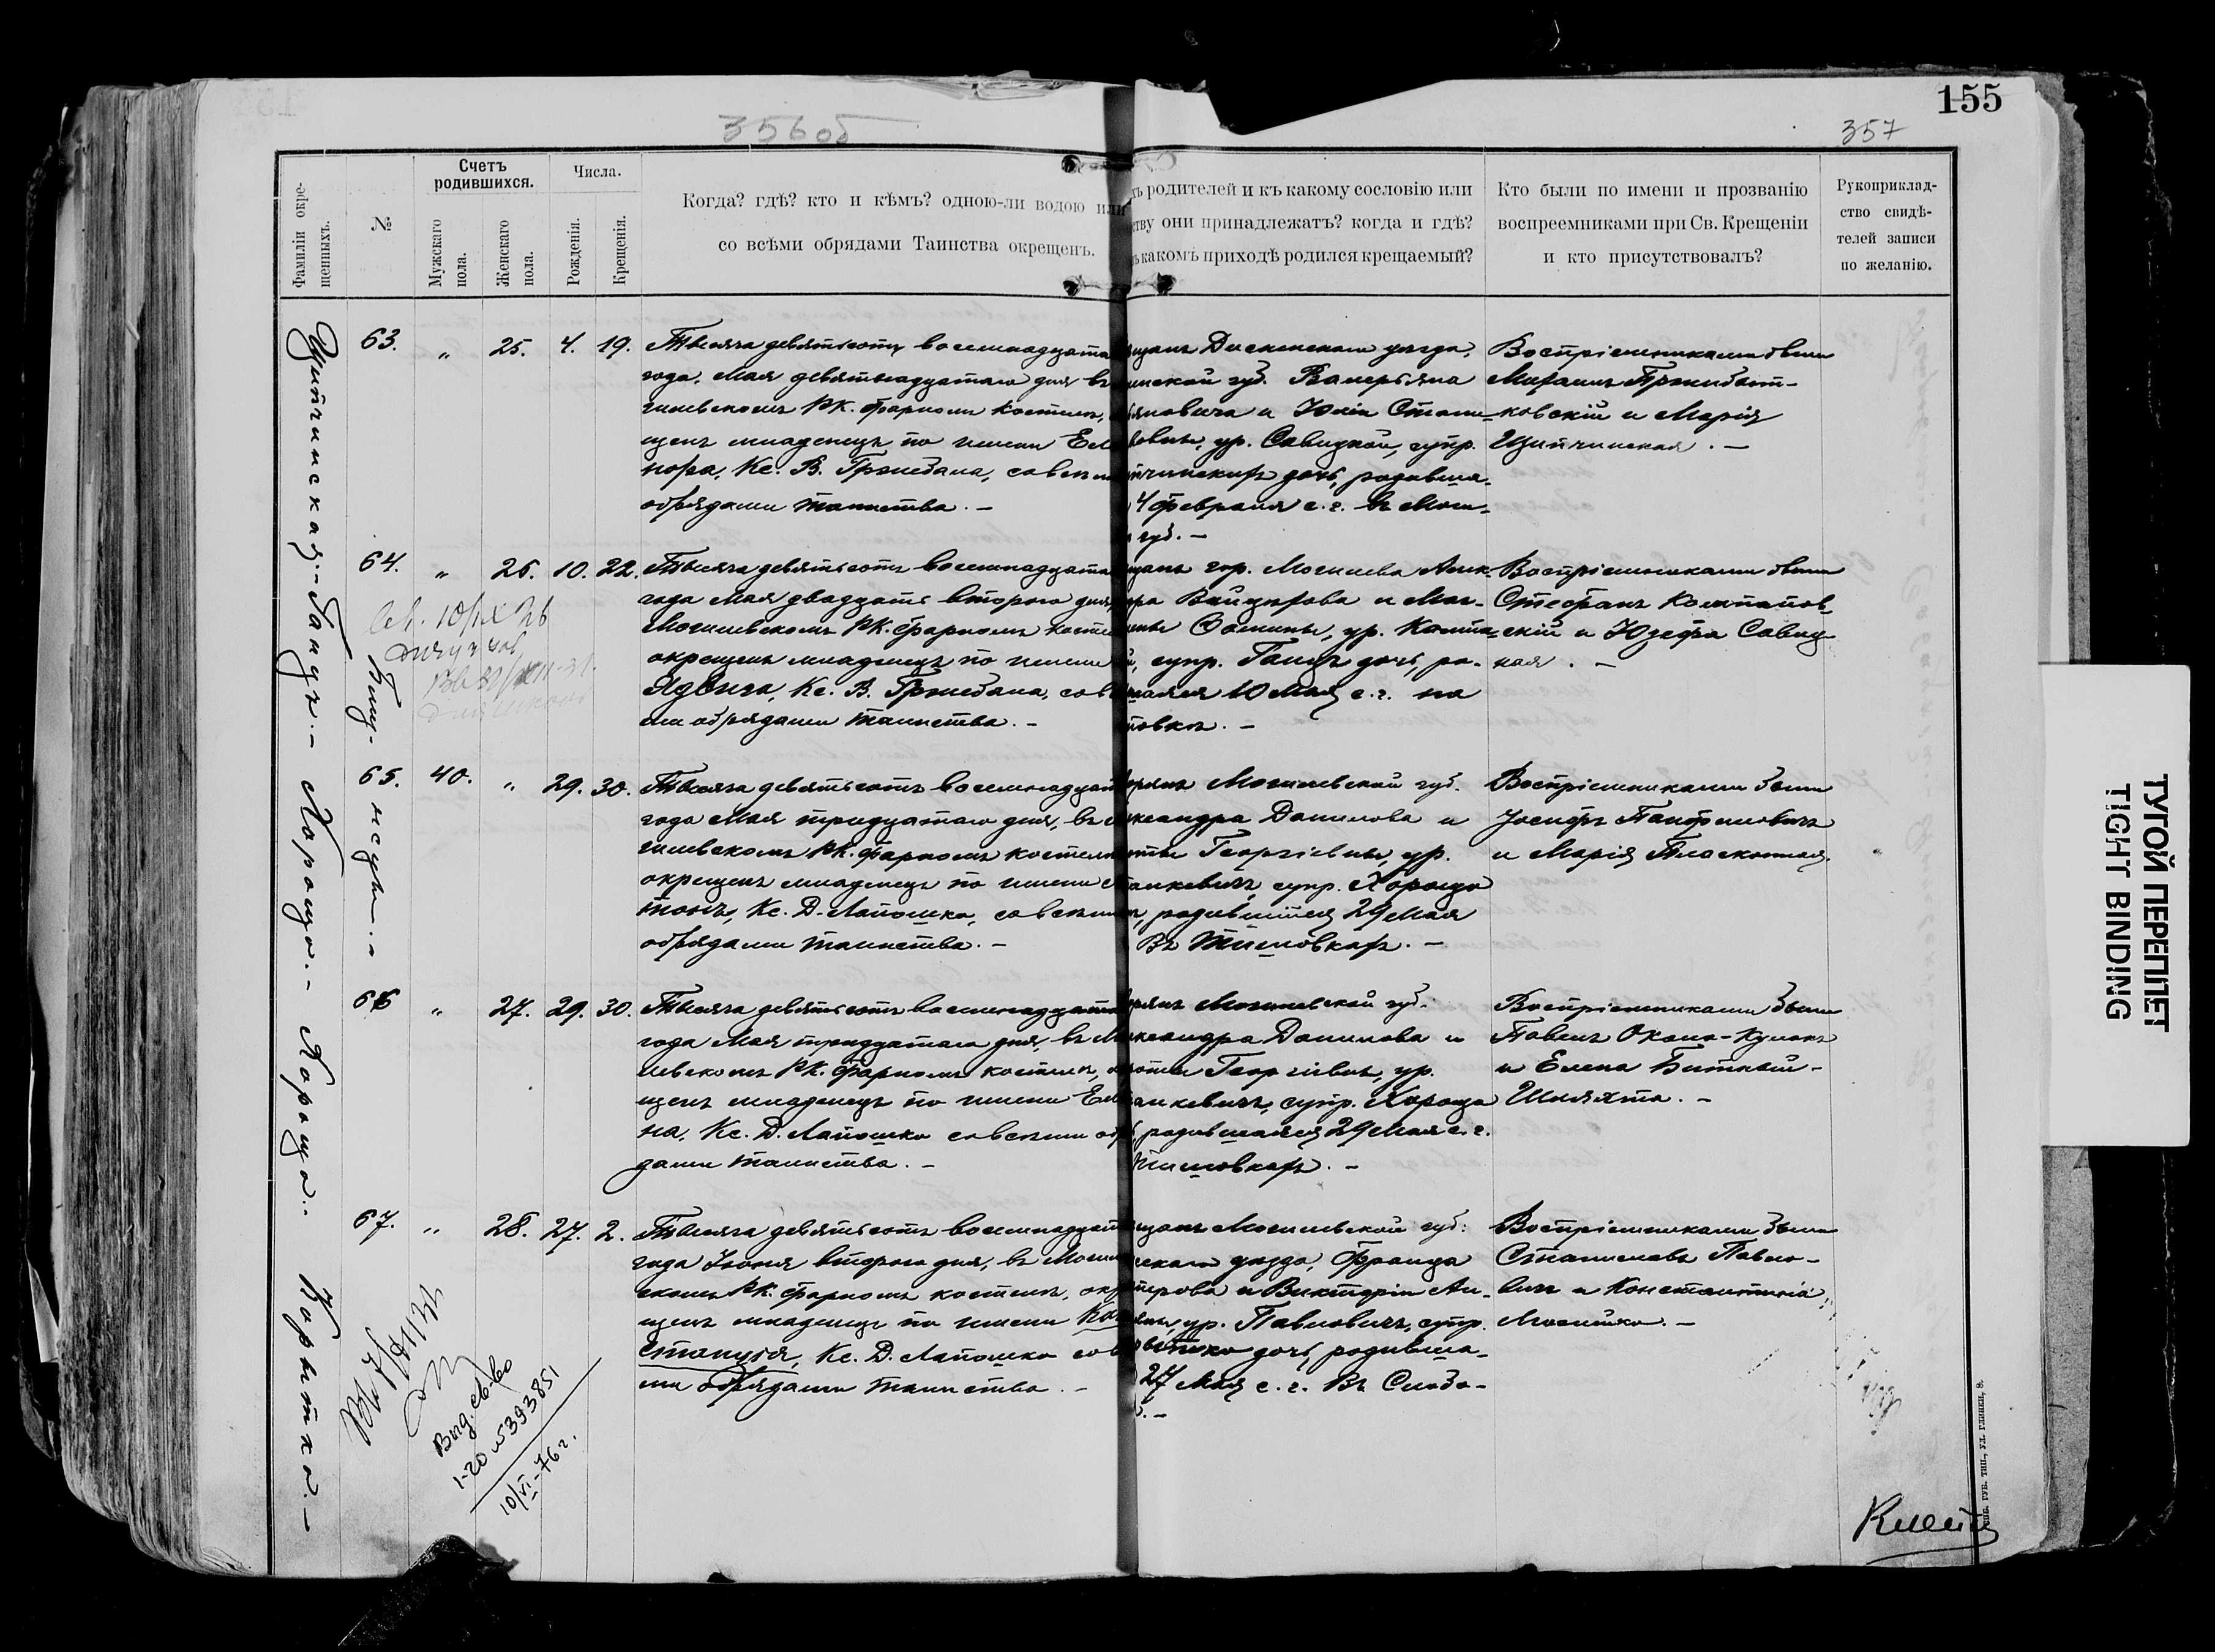 155
356об
357
Фамиліи окре-
щенныхъ.
№
Счетъ
родившихся.
Мужскаго
пола.
Женскаго
пола.
Числа.
Рожденія.
Крещенія.
Когда? гдѣ? кто и кѣмъ? одною-ли водою или
со всѣми обрядами Таинства окрещенъ.
родителей и къ какому сословію или
ству они принадлежатъ? когда и гдѣ?
какомъ приходѣ родился крещаемый?
Кто были по имени и прозванію
воспреемниками при Св. Крещеніи
и кто присутствовалъ?
Рукоприклад-
ство свидѣ-
телей записи
по желанію.
63. " 25. 4. 19.
Тысяча девятьсотъ восемнадцата
года, Мая девятнадцатаго дня въ
гилевскомъ РК. фарномъ костелѣ,
щенъ младенецъ по имени Еле
нора, Кс. В. Гржебана, со всѣми
обрядами таинства. —
щанъ Дисненскаго уѣзда,
ленской губ. Валерьяна
новича и Юліи Стани-
вовны, ур. Савицкой, супр.
тчинскихъ дочь, родивша-
4 февраля с.г. въ Моги-
губ. —
Воспріемниками были
Михаилъ Пржибыт-
ковскій и Марія
Щитчинская. —
64. " 26. 10. 22.
Тысяча девятьсотъ восемнадцата
года Мая двадцать второго дня,
Могилевскомъ РК. фарномъ косте
окрещенъ младенецъ по имени
Ядвига, Кс. В. Гржебана, со в
ми обрядами таинства. —
щанъ гор. Могилева Алек-
супр. Ганцъ дочь, ро-
шаяся 10 Мая с.г. на
новкѣ. —
Воспріемниками были
Стефанъ
скій и Юзефа Савиц-
кая. —
65. 40. " 29. 30.
Тысяча девятьсотъ восемнадцат
года Мая тридцатаго дня, въ
гилевскомъ РК. фарномъ костел
окрещенъ младенецъ по имени
тонъ, Кс. Д. Лапошко, со всѣми
обрядами таинства. —
орянъ Могилевской губ.
ксандра Данилова и
Георгіевны, ур.
анкевичъ, супр. Хороща
родившійся 29 Мая
въ Тишовкахъ. —
Воспріемниками были
Іосифъ Панфиловичъ
и Марія Плосконная.
66 " 27. 29. 30.
Тысяча девятьсотъ восемнадцата
года Мая тридцатаго дня, въ Мо
левскомъ РК. фарномъ костелѣ,
щенъ младенецъ по имени Еле
на, Кс. Д. Лапошко со всѣми обр
дами таинства. —
орянъ Могилевской губ.
ксандра Данилова и
Георгіевны, ур.
анкевичъ, супр. Хороща
родившаяся 29 Мая с.г.
Тишовкахъ. —
Воспріемниками были
Павелъ Окола-Кулакъ
и Елена Битный-
Шляхта. —
67. " 28. 27. 2.
Тысяча девятьсотъ восемнадцат
года Іюня второго дня, въ Моги
скомъ РК. фарномъ костелѣ, окр
щенъ младенецъ по имени Кон
станція, Кс. Д. Лапошко со в
ми обрядами таинства. —
щанъ Могилевской губ.
скаго уѣзда, Франца
терова и Викторіи Ан-
ур. Павловичъ, супр.
дочь, родивша-
27 Мая с.г. въ Слобо-
Воспріемниками были
Станиславъ Павло-
вичъ и Константинія
Мосейко. —
Щитчинская. — Ганцъ. — Хороща. — Хороща. —
Выд. св-во
1-20 № 5393851
10/VI-76 г.
ТУГОЙ ПЕРЕПЛЕТ
TIGHT BINDING